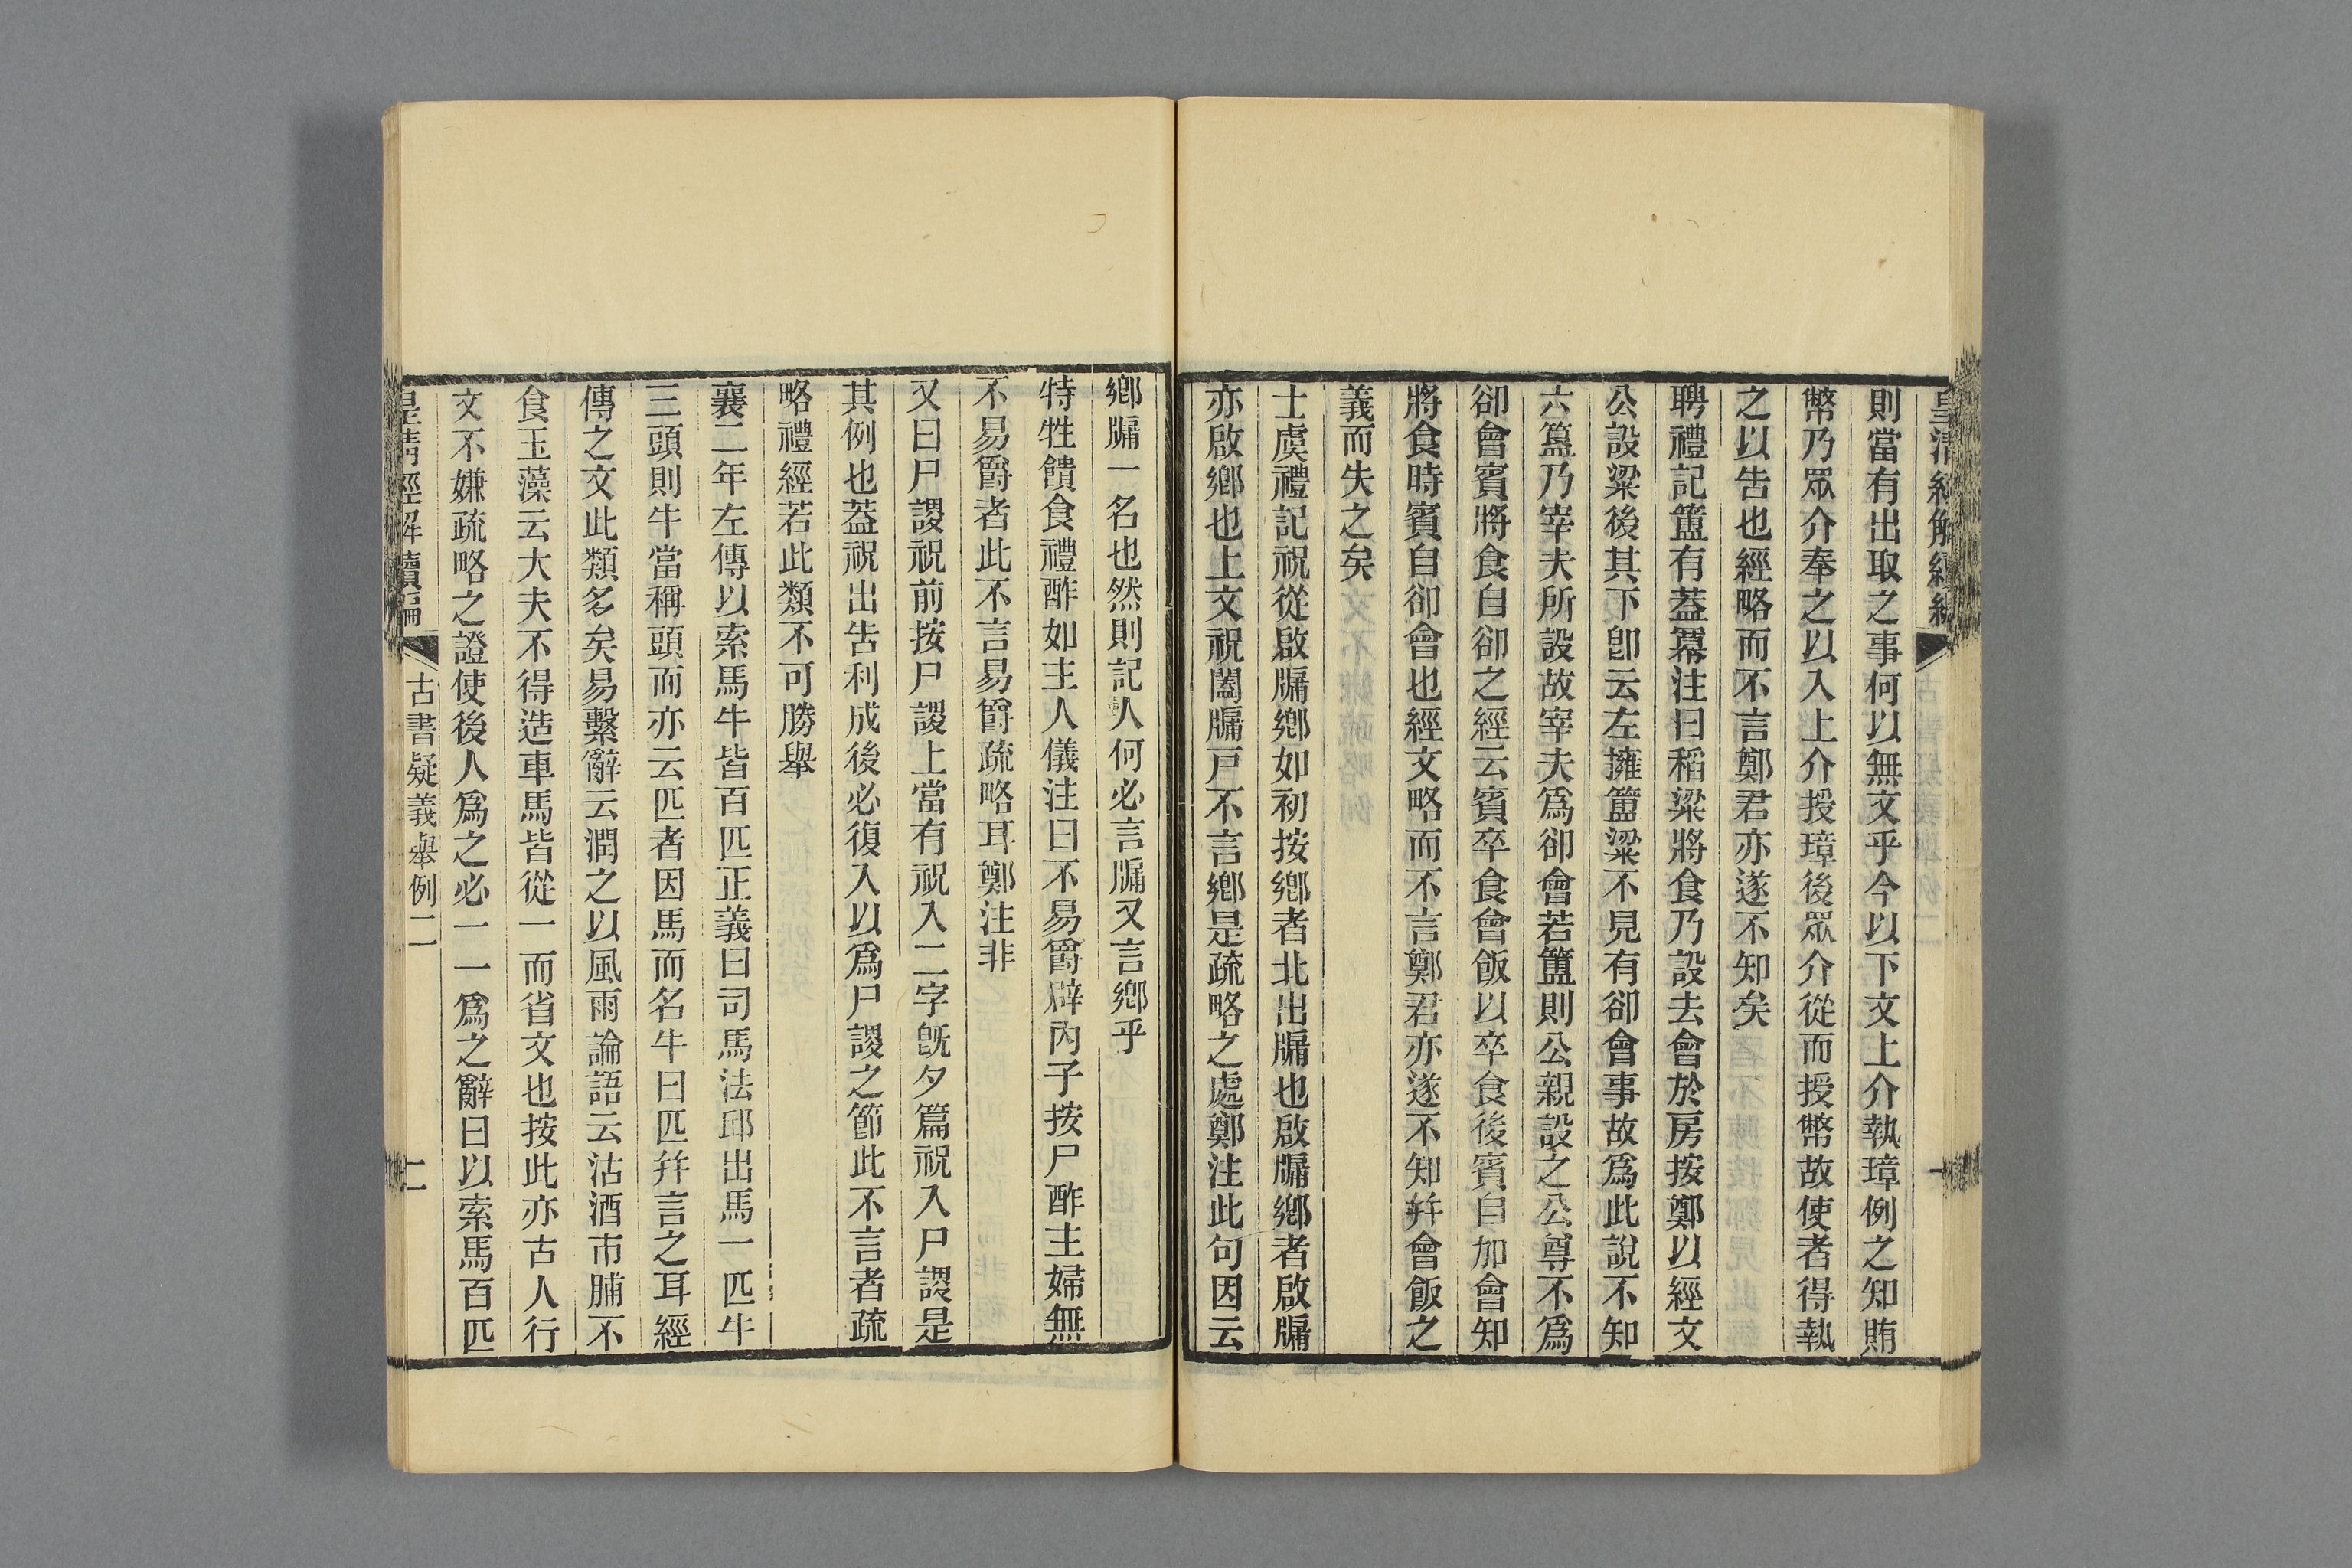 則當有出取之事何以無文乎今以下文上介執璋例之知賄
幣乃眾介奉之以入上介授璋後眾介從而授幣故使者得執
之以告也經略而不言鄭君亦遂不知矣
聘禮記簠有蓋冪注曰稻粱將食乃設去會於房按鄭以經文
公設粱後其下卽云左擁簠粱不見有卻會事故爲此說不知
六簋乃宰夫所設故宰夫爲卻會若簠則公親設之公尊不爲
卻會賓將食自卻之經云賓卒食會飯以卒食後賓自加會知
將食時賓自卻會也經文略而不言鄭君亦遂不知幷會飯之
義而失之矣
士虞禮記祝從啟牖鄉如初按鄉者北出牖也啟牖鄉者啟牖
亦啟鄉也上文祝闔牖戸不言鄉是疏略之處鄭注此句因云
鄉牖一名也然則記人何必言牖又言鄉乎
特牲饋食禮酢如主人儀注曰不易爵辟內子按尸酢主婦無
不易爵者此不言易爵疏略耳鄭注非
又曰尸謖祝前按尸謖上當有祝入二字旣夕篇祝入尸謖是
其例也蓋祝出告利成後必復入以爲尸謖之節此不言者疏
略禮經若此類不可勝舉
襄二年左傳以索馬牛皆百匹正義曰司馬法邱出馬一匹牛
三頭則牛當稱頭而亦云匹者因馬而名牛曰匹幷言之耳經
傳之文此類多矣易繫辭云潤之以風雨論語云沽酒市脯不
食玉藻云大夫不得造車馬皆從一而省文也按此亦古人行
文不嫌疏略之證使後人爲之必一一爲之辭曰以索馬百匹
皇清經解續編 古書疑義舉例二 二